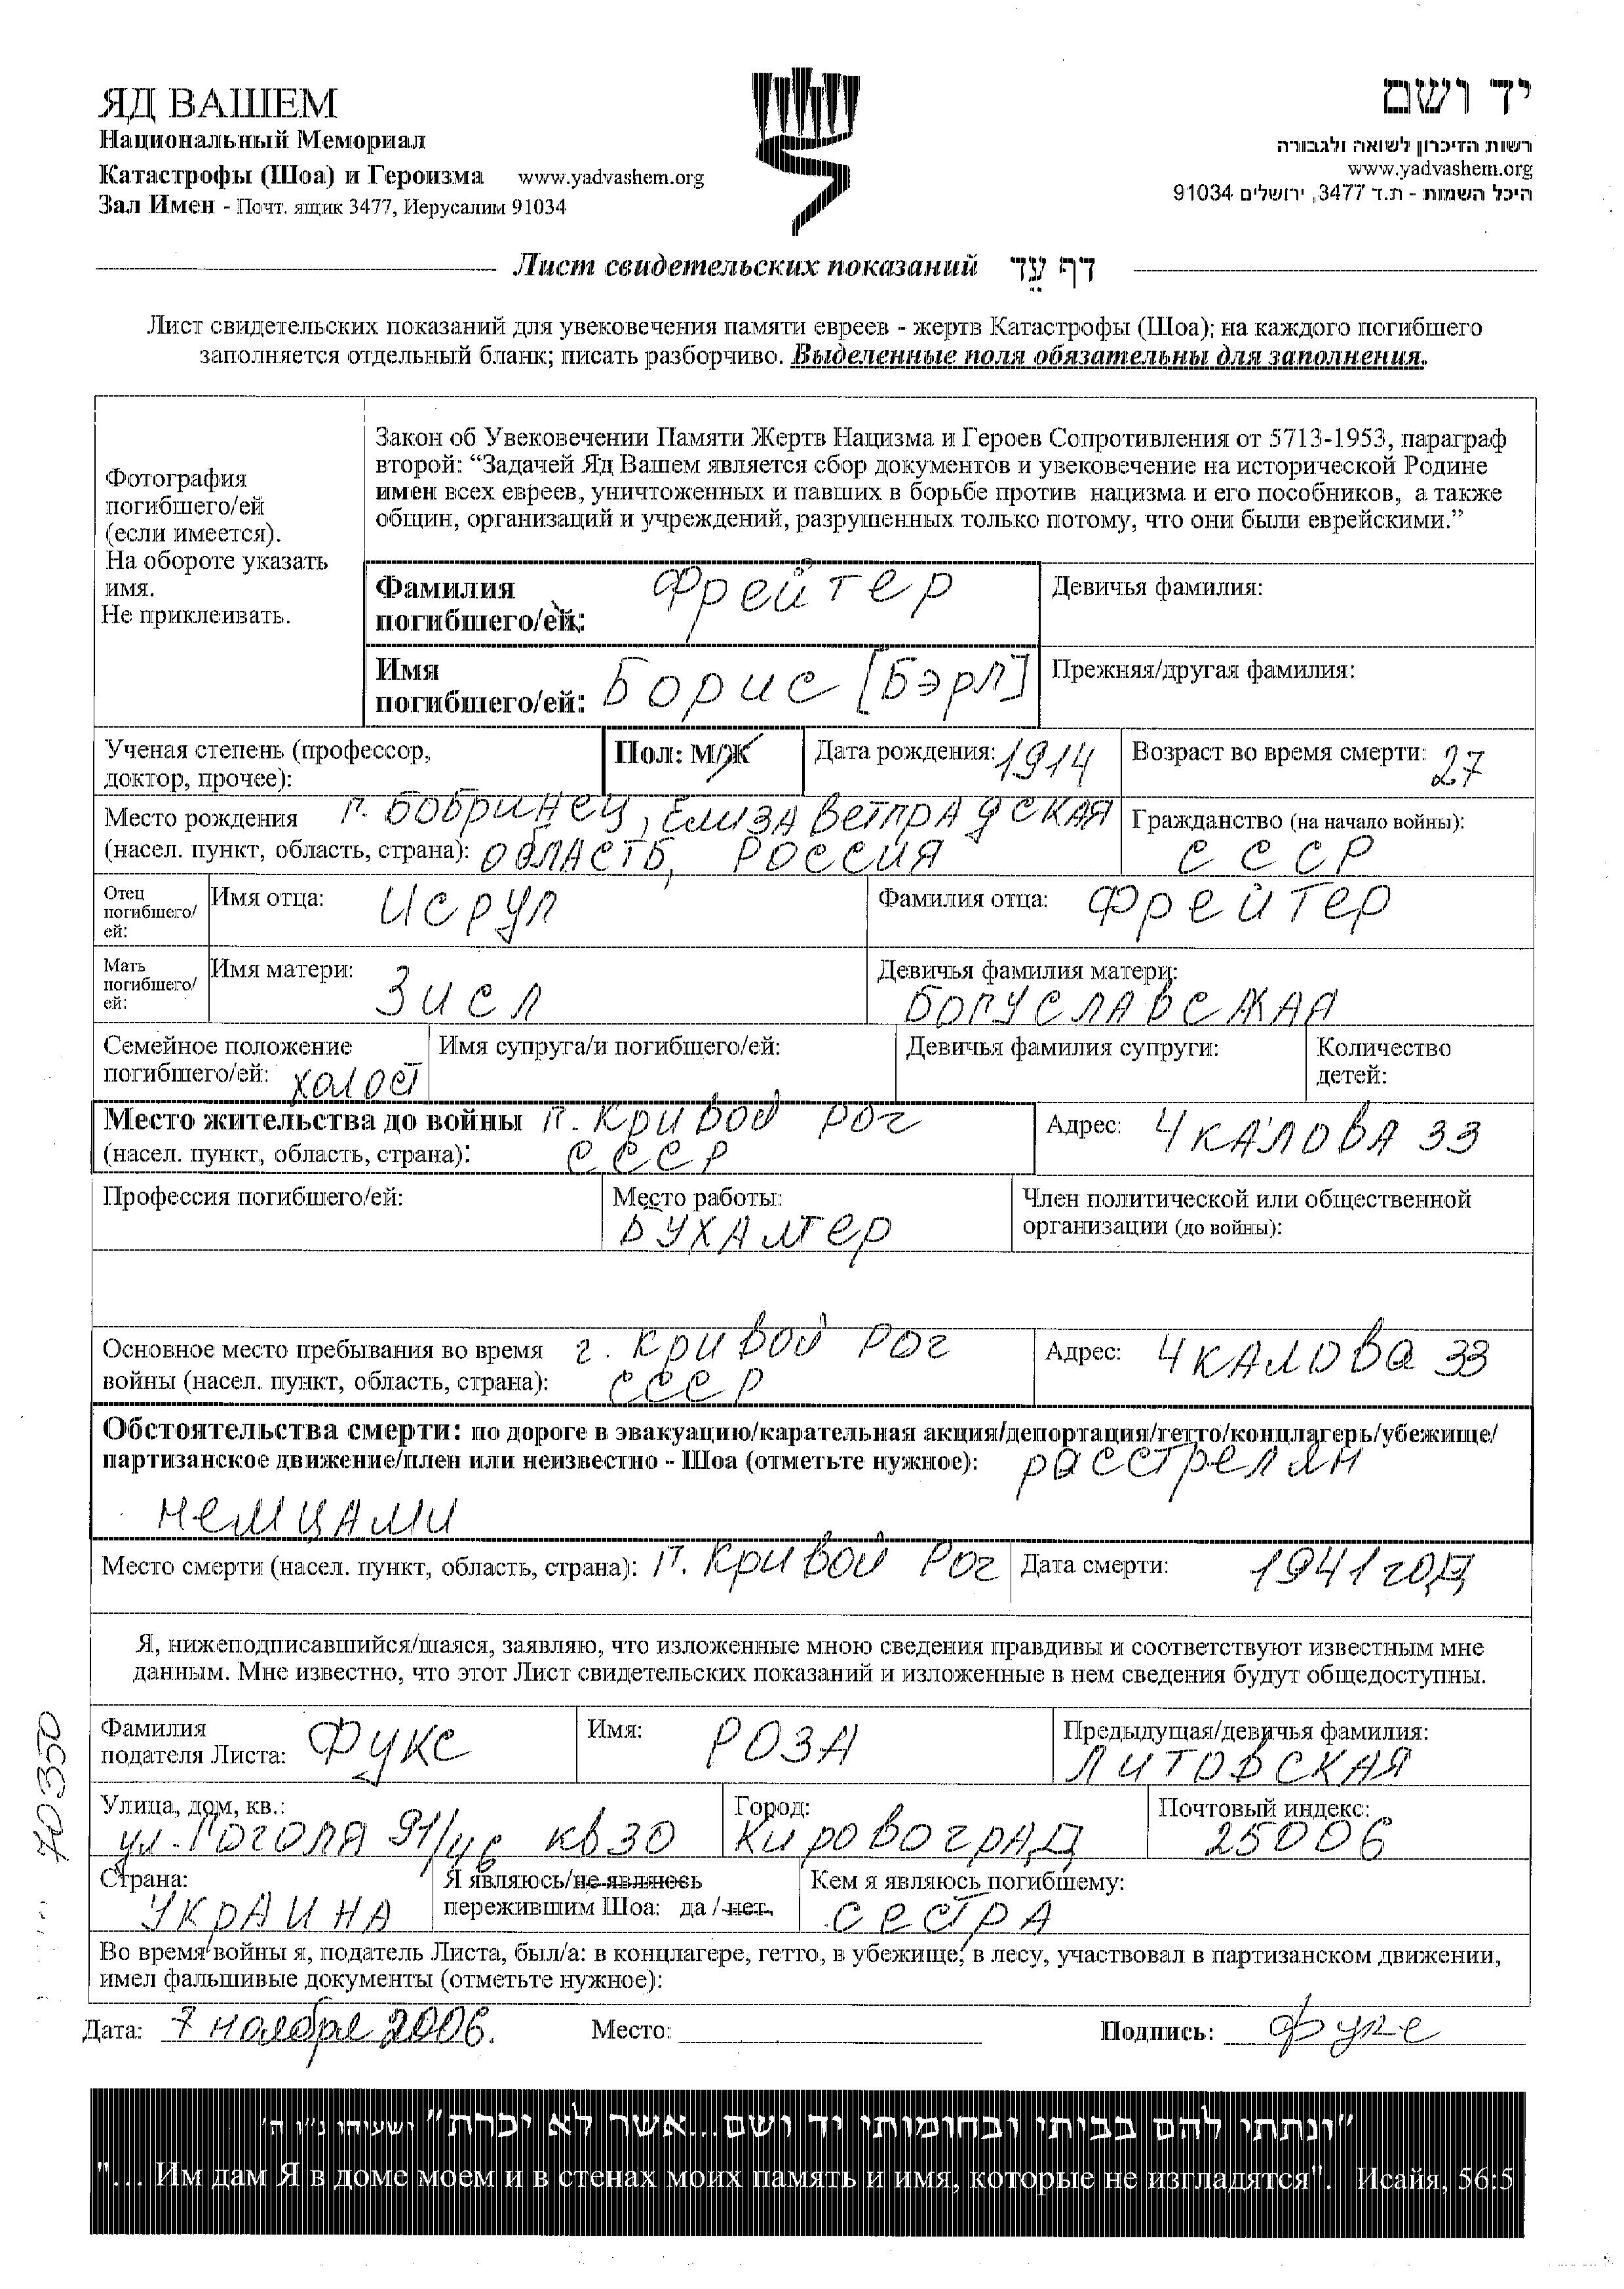 ЯД ВАШЕМ
Национальный Мемориал
Катастрофы (Шоа) и Героизма www.yadvashem.org
Зал Имен - Почт. ящик 3477, Иерусалим 91034
יד ושם
רשות הזיכרון לשואה ולגבורה
www.yadvashem.org
היכל השמות - ת.ד 3477, ירושלים 91034
Лист свидетельских показаний דף עֵד
Лист свидетельских показаний для увековечения памяти евреев - жертв Катастрофы (Шоа); на каждого погибшего
заполняется отдельный бланк; писать разборчиво. Выделенные поля обязательны для заполнения.
Фотография
погибшего/ей
(если имеется).
На обороте указать
имя.
Не приклеивать.
Закон об Увековечении Памяти Жертв Нацизма и Героев Сопротивления от 5713-1953, параграф
второй: “Задачей Яд Вашем является сбор документов и увековечение на исторической Родине
имен всех евреев, уничтоженных и павших в борьбе против нацизма и его пособников, а также
общин, организаций и учреждений, разрушенных только потому, что они были еврейскими.”
Фамилия
погибшего/ей: Фрейтер
Девичья фамилия:
Имя
погибшего/ей: Борис [Бэрл]
Прежняя/другая фамилия:
Ученая степень (профессор,
доктор, прочее):
Пол: М/Ж
Дата рождения: 1914
Возраст во время смерти: 27
Место рождения г. Бобринец, Елизаветградская
(насел. пункт, область, страна): область, Россия
Гражданство (на начало войны):
СССР
Отец
погибшего/
ей:
Имя отца: Исрул
Фамилия отца: Фрейтер
Мать
погибшего/
ей:
Имя матери: Зисл
Девичья фамилия матери:
Богуславская
Семейное положение
погибшего/ей: холост
Имя супруга/и погибшего/ей:
Девичья фамилия супруги:
Количество
детей:
Место жительства до войны г. Кривой Рог
(насел. пункт, область, страна): СССР
Адрес: Чкалова 33
Профессия погибшего/ей:
Место работы:
Бухалтер
Член политической или общественной
организации (до войны):
Основное место пребывания во время г. Кривой Рог
войны (насел. пункт, область, страна): СССР
Адрес: Чкалова 33
Обстоятельства смерти: по дороге в эвакуацию/карательная акция/депортация/гетто/концлагерь/убежище/
партизанское движение/плен или неизвестно - Шоа (отметьте нужное): расстрелян
немцами
Место смерти (насел. пункт, область, страна): г. Кривой Рог
Дата смерти: 1941 год
Я, нижеподписавшийся/шаяся, заявляю, что изложенные мною сведения правдивы и соответствуют известным мне
данным. Мне известно, что этот Лист свидетельских показаний и изложенные в нем сведения будут общедоступны.
Фамилия
подателя Листа: Фукс
Имя: Роза
Предыдущая/девичья фамилия:
Литовская
Улица, дом, кв.:
ул. Гоголя 91/46 кв 30
Город:
Кировоград
Почтовый индекс:
25006
Страна:
Украина
Я являюсь/не являюсь
пережившим Шоа: да / нет.
Кем я являюсь погибшему:
сестра
Во время войны я, податель Листа, был/а: в концлагере, гетто, в убежище, в лесу, участвовал в партизанском движении,
имел фальшивые документы (отметьте нужное):
Дата: 7 ноября 2006. Место: Подпись: Фукс
70350
"ונתתי להם בביתי ובחומותי יד ושם...אשר לא יכרת" ישעיהו נ"ו ה'
"... Им дам Я в доме моем и в стенах моих память и имя, которые не изгладятся". Исайя, 56:5